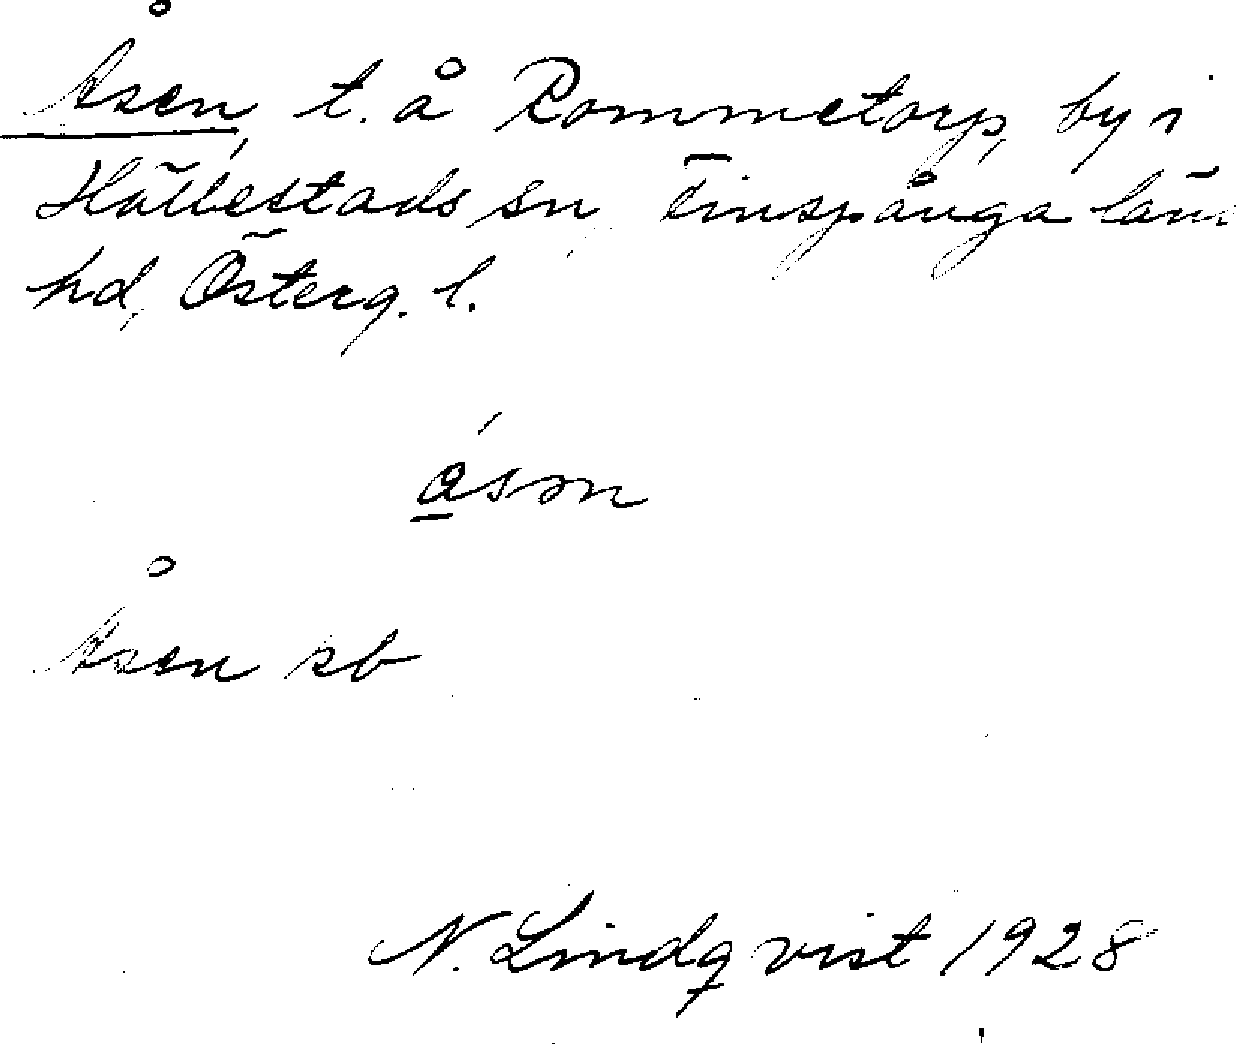 Åsen, t. å Rommetorp, by i
Hällestads sn, Finspånga läns
hd, Österg. l.
åsən
Åsen sb
N. Lindqvist 1928